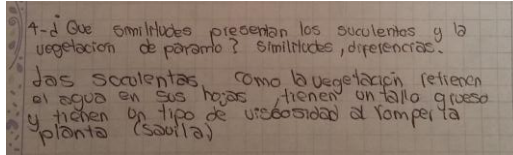 4-¿ Que similitudes presentan los suculentos y la
vegetacion de paramo? similitudes, diferencias.
Las suculentas, como la vegetación retienen
el agua en sus hojas, tienen un tallo grueso
y tienen un tipo de viscosidad al romper la
planta (savila)